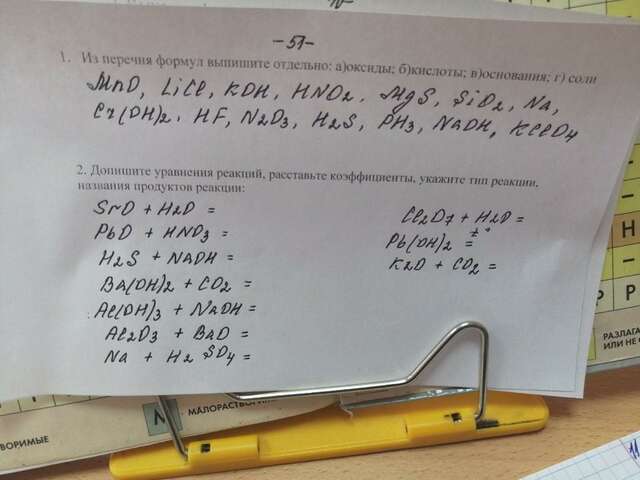 -51-
1. Из перечня формул выпишите отдельно: а)оксиды; б)кислоты; в)основания; г) соли
MnO, LiCl, KOH, HNO2, MgS, SiO2, Na,
Cr(OH)2, HF, N2O3, H2S, PH3, NaOH, KClO4
2. Допишите уравнения реакций, расставьте коэффициенты, укажите тип реакции,
названия продуктов реакции:
SrO + H2O =
PbO + HNO3 =
H2S + NaOH =
Ba(OH)2 + CO2 =
Al(OH)3 + NaOH =
Al2O3 + BaO =
Na + H2SO4 =
Cl2O7 + H2O =
Pb(OH)2 t° =
K2O + CO2 =
Н
Р Р
РАЗЛАГА
ИЛИ НЕ
М
МАЛОРАСТВОРИМ
ОРИМЫЕ
11